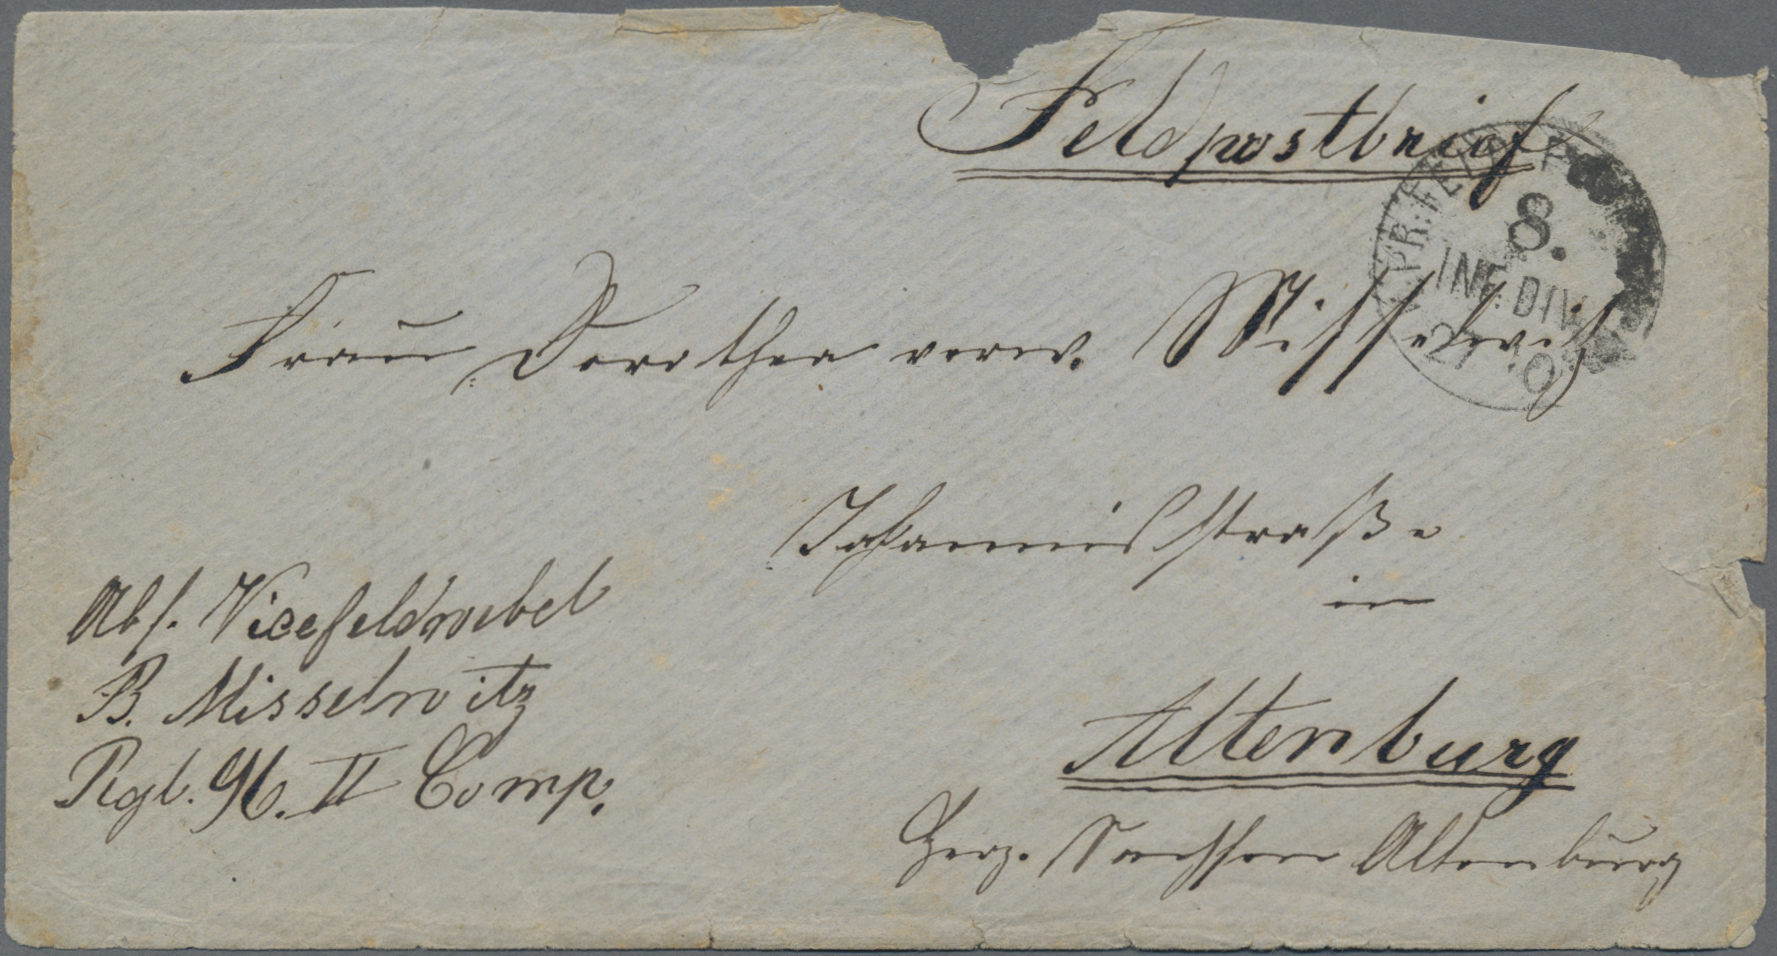 Feldpostbrief
K. PR. FELD P
8.
INF. DIV.
27 10
Frau Dorothea verw. Misselwitz
Johannisstraße
in
Altenburg
Herz. Sachsen Altenburg
Abs. Vicefeldwebel
B. Misselwitz
Rgt. 96. II Comp.